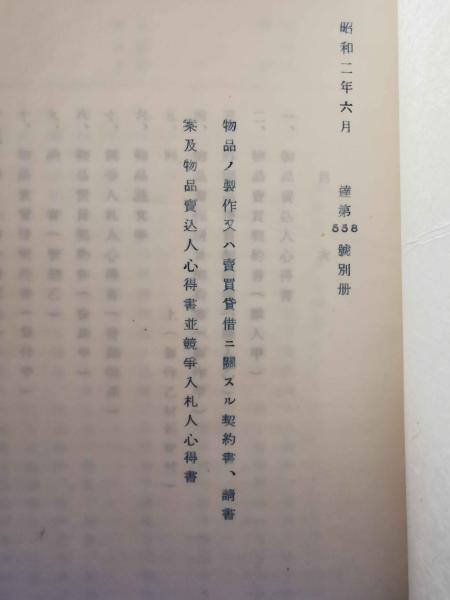 昭和二年六月　達第558號別册
物品ノ製作又ハ賣買貸借ニ關スル契約書、請書
案及物品賣込人心得書並競爭入札人心得書